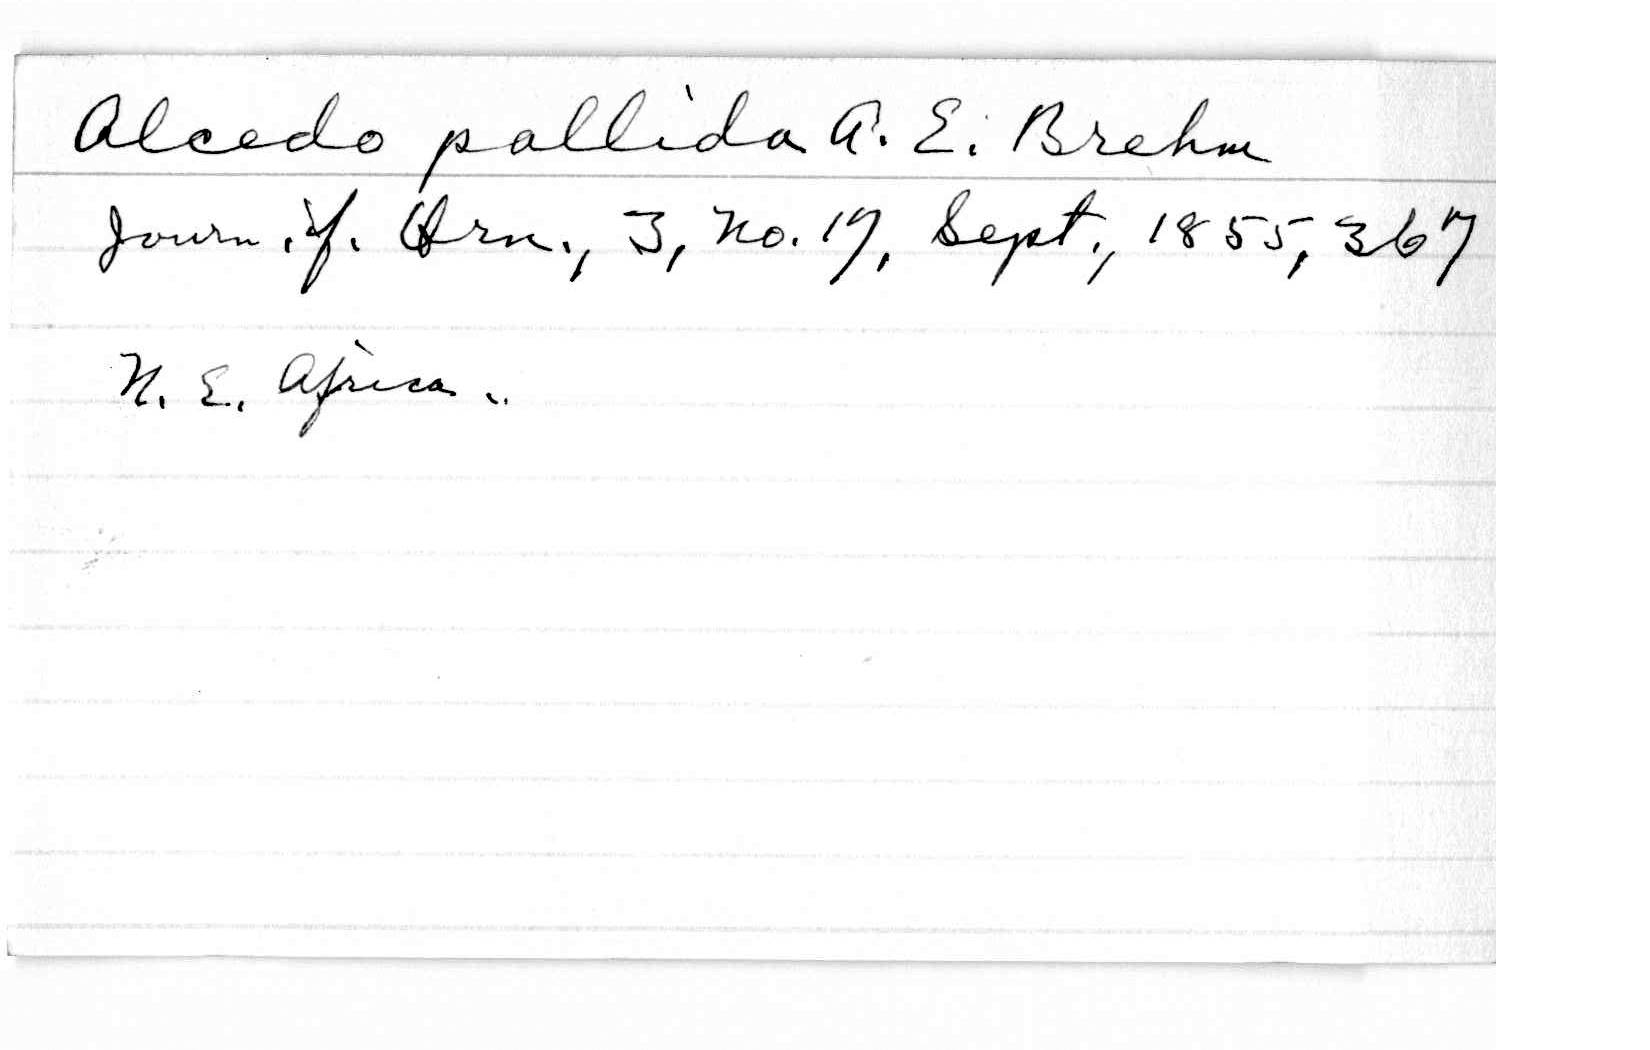 Alcedo pallida A. E. Brehm
Journ. f. Orn., 3, no. 17, Sept., 1855, 367
N. E. Africa.